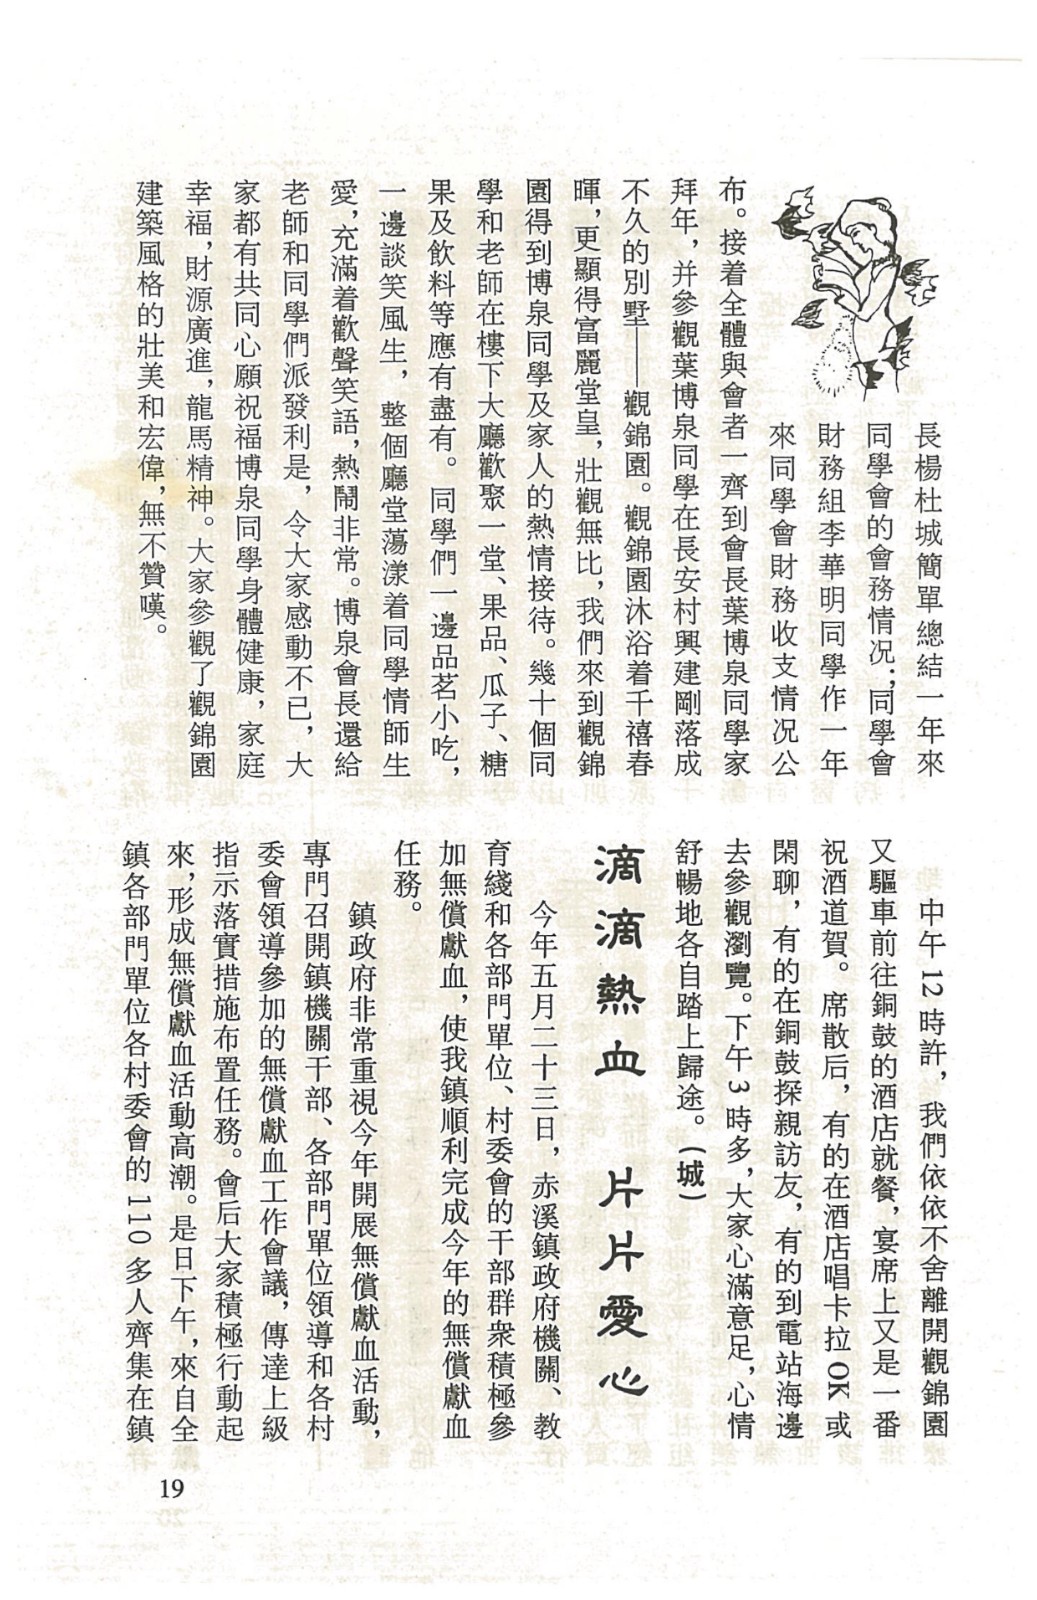 長楊杜城簡單總結一年來
同學會的會務情况；同學會
財務組李華明同學作一年
來同學會財務收支情况公
布。接着全體與會者一齊到會長葉博泉同學家
拜年，并參觀葉博泉同學在長安村興建剛落成
不久的別墅——觀錦園。觀錦園沐浴着千禧春
暉，更顯得富麗堂皇，壯觀無比，我們來到觀錦
園得到博泉同學及家人的熱情接待。幾十個同
學和老師在樓下大廳歡聚一堂、果品、瓜子、糖
果及飲料等應有盡有。同學們一邊品茗小吃，
一邊談笑風生，整個廳堂蕩漾着同學情師生
愛，充滿着歡聲笑語，熱鬧非常。博泉會長還給
老師和同學們派發利是，令大家感動不已，大
家都有共同心願祝福博泉同學身體健康，家庭
幸福，財源廣進，龍馬精神。大家參觀了觀錦園
建築風格的壯美和宏偉，無不贊嘆。
中午12時許，我們依依不舍離開觀錦園
又驅車前往銅鼓的酒店就餐，宴席上又是一番
祝酒道賀。席散后，有的在酒店唱卡拉OK或
閑聊，有的在銅鼓探親訪友，有的到電站海邊
去參觀瀏覽。下午3時多，大家心滿意足，心情
舒暢地各自踏上歸途。(城)
滴滴熱血 片片愛心
今年五月二十三日，赤溪鎮政府機關、教
育綫和各部門單位、村委會的干部群衆積極參
加無償獻血，使我鎮順利完成今年的無償獻血
任務。
鎮政府非常重視今年開展無償獻血活動，
專門召開鎮機關干部、各部門單位領導和各村
委會領導參加的無償獻血工作會議，傳達上級
指示落實措施布置任務。會后大家積極行動起
來，形成無償獻血活動高潮。是日下午，來自全
鎮各部門單位各村委會的110多人齊集在鎮
19